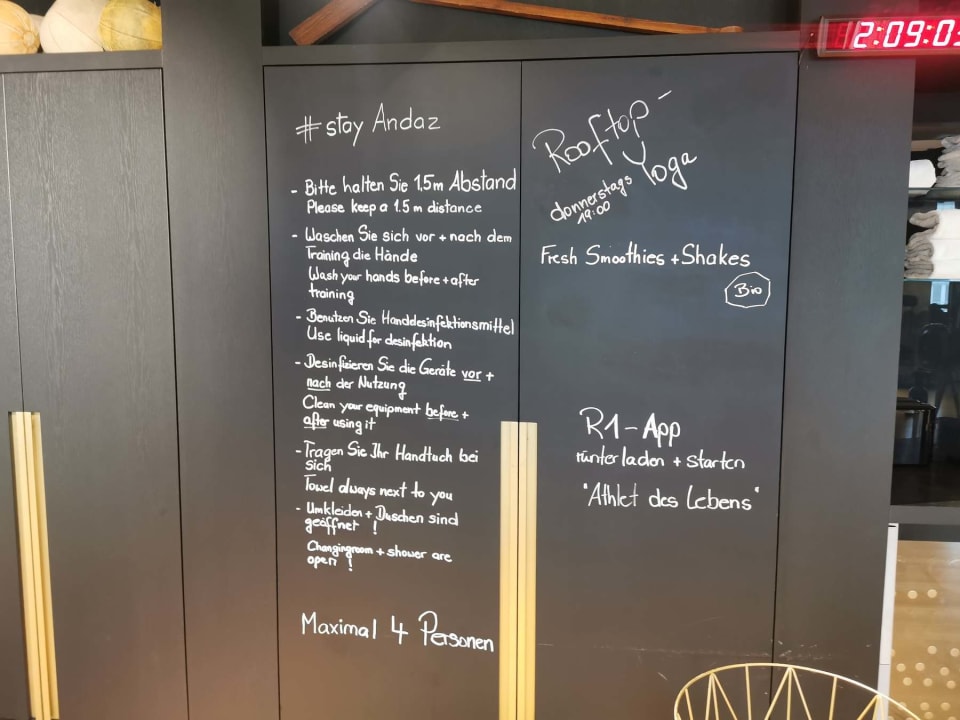 #stay Andaz
- Bitte halten Sie 1,5m Abstand
Please keep a 1.5 m distance
- Waschen Sie sich vor + nach dem
Training die Hände
Wash your hands before + after
training
- Benutzen Sie Handdesinfektionsmittel
Use liquid for desinfektion
- Desinfizieren Sie die Geräte vor +
nach der Nutzung
Clean your equipment before +
after using it
- Tragen Sie Ihr Handtuch bei
sich
Towel always next to you
- Umkleiden + Duschen sind
geöffnet !
Changingroom + shower are
open !
Maximal 4 Personen
Rooftop -
Yoga
donnerstags
19:00
Fresh Smoothies + Shakes
Bio
R1-App
runterladen + starten
"Athlet des Lebens"
2:09:0